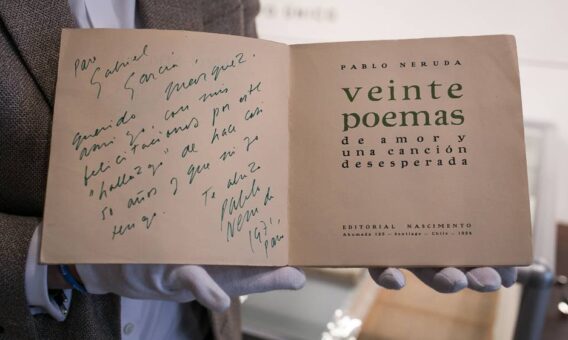 Para
Gabriel
García Márquez.
querido
amigo, con mis
felicitaciones por este
"hallazgo" de hace casi
50 años y que ni yo
tengo. Te abraza
Pablo
Neruda
1971,
Paris
PABLO NERUDA
veinte
poemas
de amor y
una canción
desesperada
EDITORIAL NASCIMENTO
Ahumada 125 — Santiago — Chile — 1924